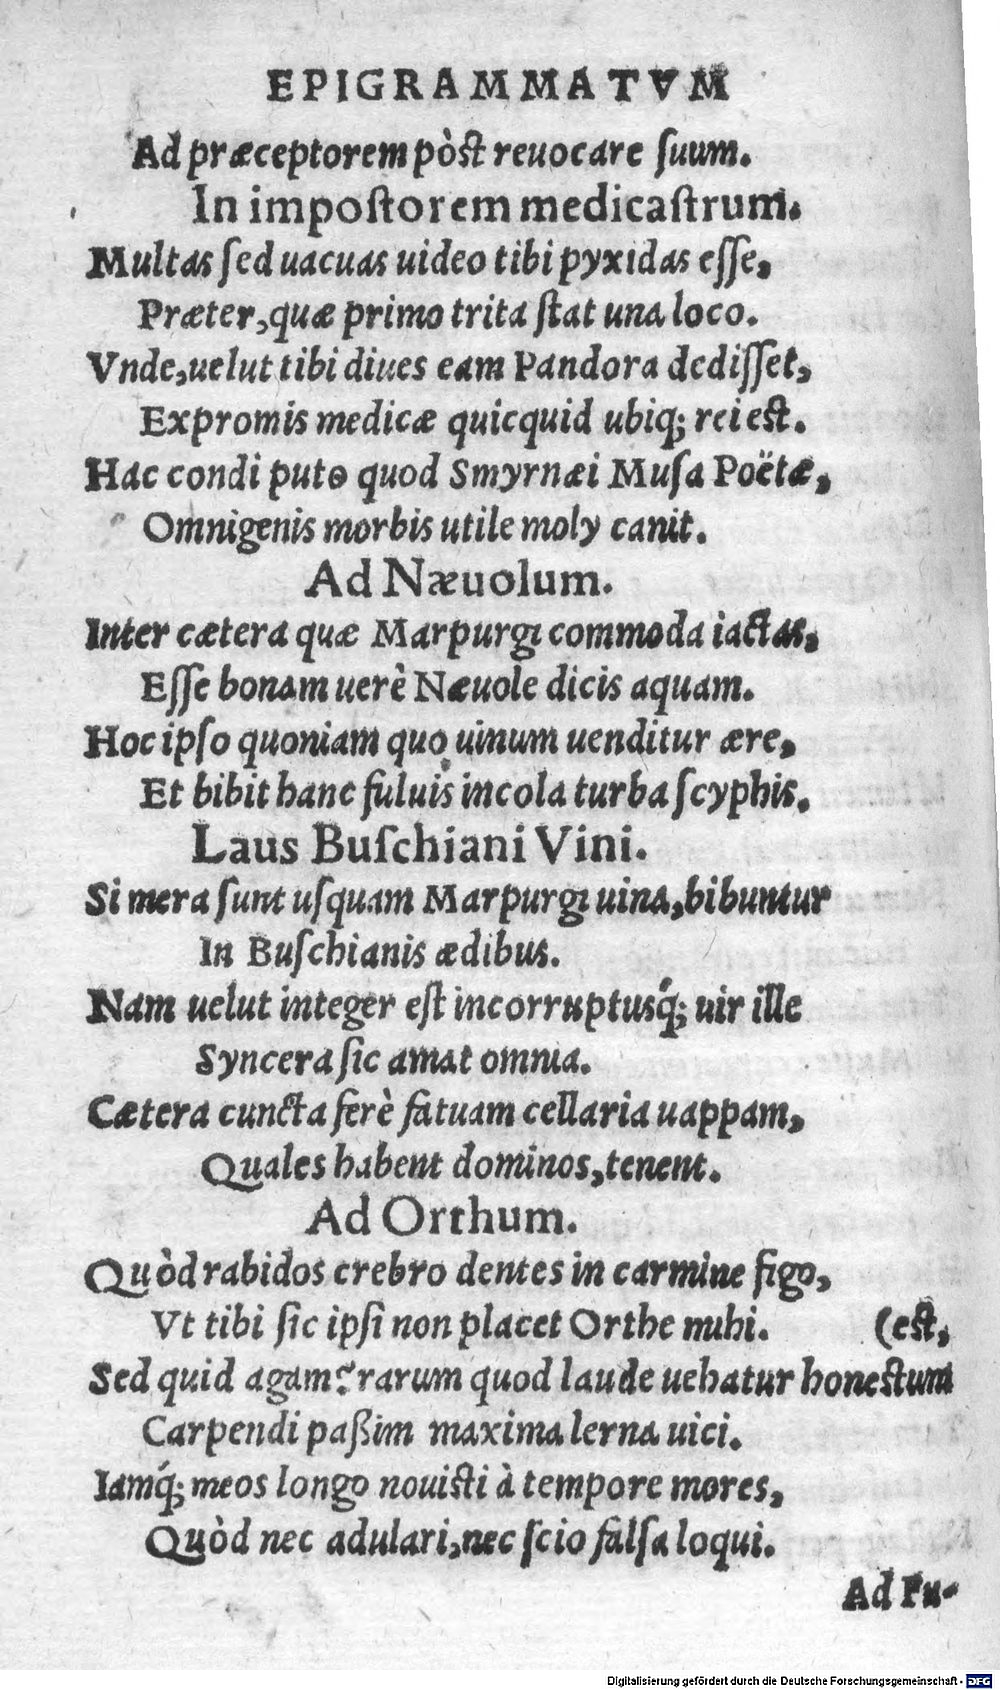 EPIGRAMMATVM
Ad præceptorem pòst reuocare ſuum.
In impoſtorem medicaſtrum.
Multas ſed uacuas uideo tibi pyxidas eſſe,
Præter, quæ primo trita ſtat una loco.
Vnde, uelut tibi diues eam Pandora dediſſet,
Expromis medicæ quicquid ubiq; rei eſt.
Hac condi puto quod Smyrnæi Muſa Poëtæ,
Omnigenis morbis utile moly canit.
Ad Næuolum.
Inter cætera quæ Marpurgi commoda iactas,
Eſſe bonam uerè Næuole dicis aquam.
Hoc ipſo quoniam quo uinum uenditur ære,
Et bibit hanc fuluis incola turba ſcyphis.
Laus Buſchiani Vini.
Si mera ſunt uſquam Marpurgi uina, bibuntur
In Buſchianis ædibus.
Nam uelut integer eſt incorruptusq́; uir ille
Syncera ſic amat omnia.
Cætera cuncta ferè fatuam cellaria uappam,
Quales habent dominos, tenent.
Ad Orthum.
Quòd rabidos crebro dentes in carmine figo,
Vt tibi ſic ipſi non placet Orthe mihi. (eſt,
Sed quid agam? rarum quod laude uehatur honeſtum
Carpendi paßim maxima lerna uici.
Iamq́; meos longo nouiſti à tempore mores,
Quòd nec adulari, nec ſcio falſa loqui.
Ad Fu-
Digitalisierung gefördert durch die Deutsche Forschungsgemeinschaft - DFG